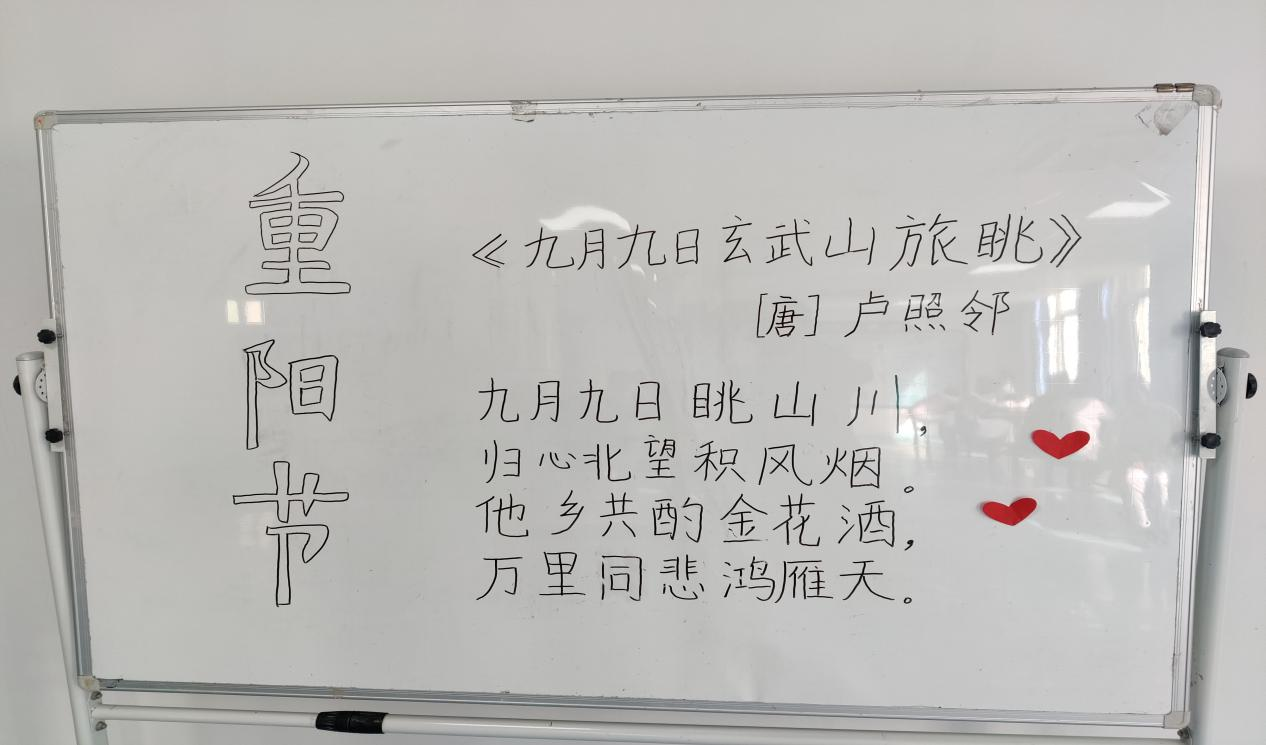 重阳节
《九月九日玄武山旅眺》
[唐] 卢照邻
九月九日眺山川,
归心北望积风烟。
他乡共酌金花酒,
万里同悲鸿雁天。